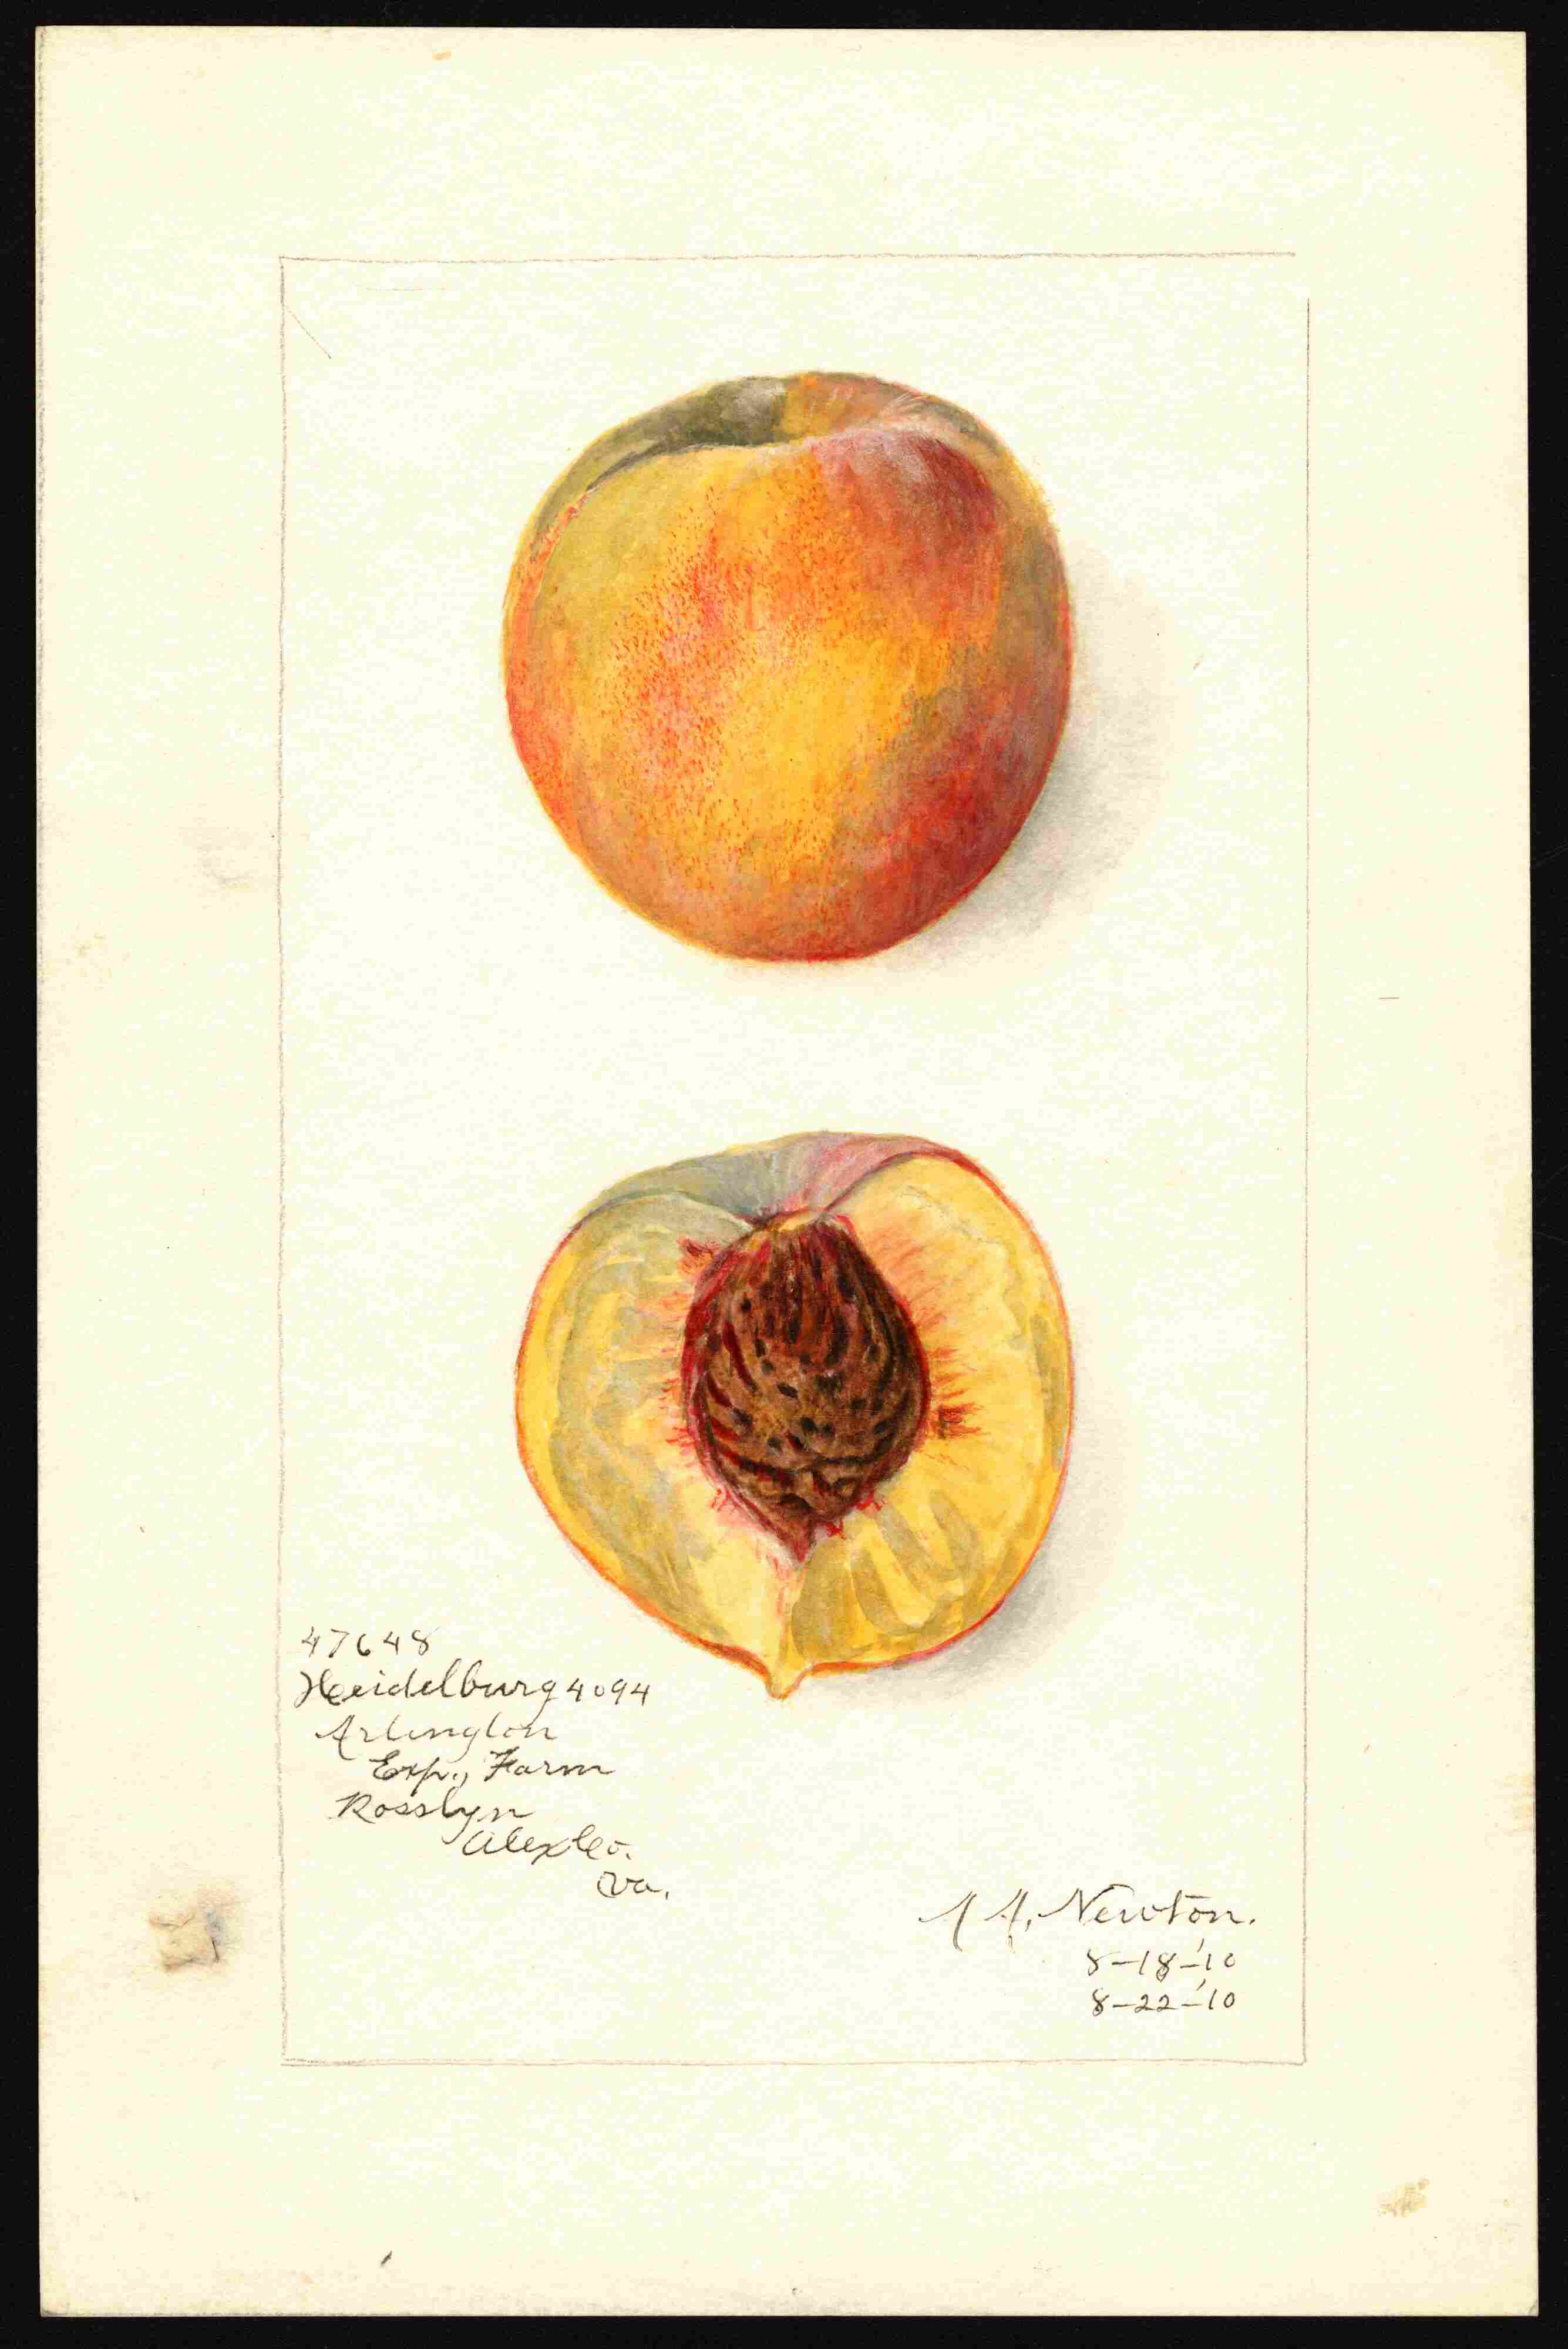 47648
Heidelburg 4094
Arlington
Exp., Farm
Rosslyn
Alex Co.
Va.
A A. Newton.
8-18-'10
8-22-'10